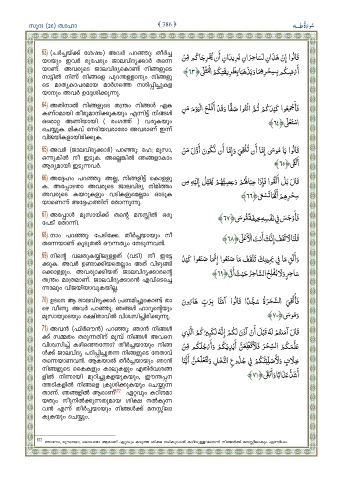 സൂറ: (20) ത്വാഹാ
﴾ 386 ﴿
سُورَةُ طه
63) (ചർച്ചയ്ക്ക് ശേഷം) അവർ പറഞ്ഞു: തീർച്ച
യായും ഇവർ രണ്ടുപേരും ജാലവിദ്യക്കാർ തന്നെ
യാണ്. അവരുടെ ജാലവിദ്യകൊണ്ട് നിങ്ങളുടെ
നാട്ടിൽ നിന്ന് നിങ്ങളെ പുറന്തള്ളാനും നിങ്ങളു
ടെ മാതൃകാപരമായ മാർഗത്തെ നശിപ്പിച്ചുകള
യാനും അവർ ഉദ്ദേശിക്കുന്നു.
قَالُوا إِنْ هَٰذَانِ لَسَاحِرَانِ يُرِيدَانِ أَن يُخْرِجَاكُم مِّنْ
أَرْضِكُم بِسِحْرِهِمَا وَيَذْهَبَا بِطَرِيقَتِكُمُ الْمُثْلَىٰ ﴿٦٣﴾
64) അതിനാൽ നിങ്ങളുടെ തന്ത്രം നിങ്ങൾ ഏക
കണ്ഠമായി തീരുമാനിക്കുകയും എന്നിട്ട് നിങ്ങൾ
ഒരൊറ്റ അണിയായി ( രംഗത്ത് ) വരുകയും
ചെയ്യുക. മികവ് നേടിയവരാരോ അവരാണ് ഇന്ന്
വിജയികളായിരിക്കുക.
فَأَجْمِعُوا كَيْدَكُمْ ثُمَّ ائْتُوا صَفًّا وَقَدْ أَفْلَحَ الْيَوْمَ مَنِ
اسْتَعْلَىٰ ﴿٦٤﴾
65) അവർ (ജാലവിദ്യക്കാർ) പറഞ്ഞു: ഹേ; മൂസാ,
ഒന്നുകിൽ നീ ഇടുക. അല്ലെങ്കിൽ ഞങ്ങളാകാം
ആദ്യമായി ഇടുന്നവർ.
قَالُوا يَا مُوسَىٰ إِمَّا أَن تُلْقِيَ وَإِمَّا أَن نَّكُونَ أَوَّلَ مَنْ
أَلْقَىٰ ﴿٦٥﴾
66) അദ്ദേഹം പറഞ്ഞു: അല്ല, നിങ്ങളിട്ട് കൊള്ളു
ക. അപ്പോഴതാ അവരുടെ ജാലവിദ്യ നിമിത്തം
അവരുടെ കയറുകളും വടികളുമെല്ലാം ഓടുക
യാണെന്ന് അദ്ദേഹത്തിന് തോന്നുന്നു.
قَالَ بَلْ أَلْقُوا فَإِذَا حِبَالُهُمْ وَعِصِيُّهُمْ يُخَيَّلُ إِلَيْهِ مِن
سِحْرِهِمْ أَنَّهَا تَسْعَىٰ ﴿٦٦﴾
67) അപ്പോൾ മൂസായ്ക്ക് തന്റെ മനസ്സിൽ ഒരു
പേടി തോന്നി.
فَأَوْجَسَ فِي نَفْسِهِ خِيفَةً مُّوسَىٰ ﴿٦٧﴾
68) നാം പറഞ്ഞു: പേടിക്കേണ്ട. തീർച്ചയായും നീ
തന്നെയാണ് കൂടുതൽ ഔന്നത്യം നേടുന്നവൻ.
قُلْنَا لَا تَخَفْ إِنَّكَ أَنتَ الْأَعْلَىٰ ﴿٦٨﴾
69) നിന്റെ വലതുകയ്യിലുള്ളത് (വടി) നീ ഇട്ടേ
ക്കുക. അവർ ഉണ്ടാക്കിയതെല്ലാം അത് വിഴുങ്ങി
ക്കൊള്ളും. അവരുണ്ടാക്കിയത് ജാലവിദ്യക്കാരന്റെ
തന്ത്രം മാത്രമാണ്. ജാലവിദ്യക്കാരൻ എവിടെച്ചെ
ന്നാലും വിജയിയാവുകയില്ല.
وَأَلْقِ مَا فِي يَمِينِكَ تَلْقَفْ مَا صَنَعُوا إِنَّمَا صَنَعُوا كَيْدُ
سَاحِرٍ وَلَا يُفْلِحُ السَّاحِرُ حَيْثُ أَتَىٰ ﴿٦٩﴾
70) ഉടനെ ആ ജാലവിദ്യക്കാർ പ്രണമിച്ചുകൊണ്ട് താ
ഴെ വീണു. അവർ പറഞ്ഞു: ഞങ്ങൾ ഹാറൂന്റെയും
മൂസായുടെയും രക്ഷിതാവിൽ വിശ്വസിച്ചിരിക്കുന്നു.
فَأُلْقِيَ السَّحَرَةُ سُجَّدًا قَالُوا آمَنَّا بِرَبِّ هَارُونَ
وَمُوسَىٰ ﴿٧٠﴾
71) അവൻ (ഫിർഔൻ) പറഞ്ഞു: ഞാൻ നിങ്ങൾ
ക്ക് സമ്മതം തരുന്നതിന് മുമ്പ് നിങ്ങൾ അവനെ
വിശ്വസിച്ച് കഴിഞ്ഞെന്നോ? തീർച്ചയായും നിങ്ങ
ൾക്ക് ജാലവിദ്യ പഠിപ്പിച്ചുതന്ന നിങ്ങളുടെ നേതാവ്
തന്നെയാണവൻ. ആകയാൽ തീർച്ചയായും ഞാൻ
നിങ്ങളുടെ കൈകളും കാലുകളും എതിർവശങ്ങ
ളിൽ നിന്നായി മുറിച്ചുകളയുകയും, ഈന്തപ്പന
ത്തടികളിൽ നിങ്ങളെ ക്രൂശിക്കുകയും ചെയ്യുന്ന
താണ്. ഞങ്ങളിൽ ആരാണ് ഏറ്റവും കഠിനമാ
യതും നീണ്ടുനിൽക്കുന്നതുമായ ശിക്ഷ നൽകുന്ന
വൻ എന്ന് തീർച്ചയായും നിങ്ങൾക്ക് മനസ്സിലാ
കുകയും ചെയ്യും.
قَالَ آمَنتُمْ لَهُ قَبْلَ أَنْ آذَنَ لَكُمْ إِنَّهُ لَكَبِيرُكُمُ الَّذِي
عَلَّمَكُمُ السِّحْرَ فَلَأُقَطِّعَنَّ أَيْدِيَكُمْ وَأَرْجُلَكُم مِّنْ
خِلَافٍ وَلَأُصَلِّبَنَّكُمْ فِي جُذُوعِ النَّخْلِ وَلَتَعْلَمُنَّ أَيُّنَا
أَشَدُّ عَذَابًا وَأَبْقَىٰ ﴿٧١﴾